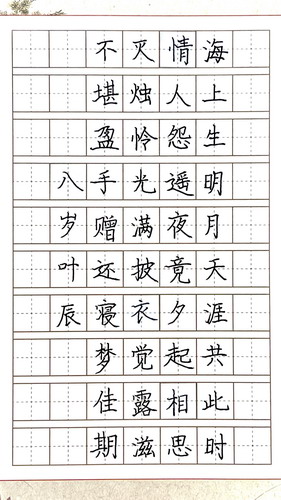 海上生明月天涯共此时
情人怨遥夜竟夕起相思
灭烛怜光满披衣觉露滋
不堪盈手赠还寝梦佳期
八岁叶辰